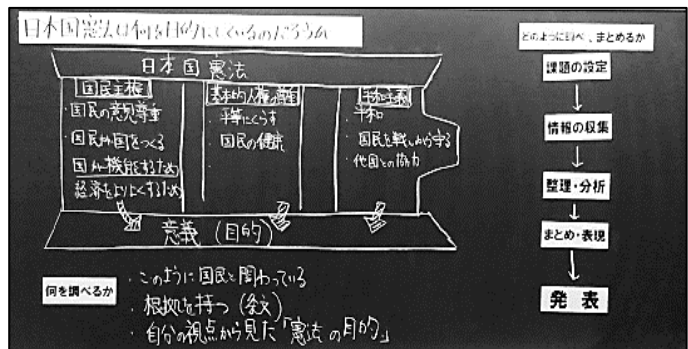 日本国憲法は何を目的にしているのだろうか
日本国憲法
国民主権
・国民の意見尊重
・国民が国をつくる
国が機能するため
経済をよりよくするため
基本的人権の尊重
・平等にくらす
・国民の健康
平和主義
・平和
・国民を戦いから守る
・他国との協力
意義(目的)
何を調べるか
・このように国民と関わっている
・根拠を持つ(条文)
・自分の視点から見た「憲法の目的」
どのように調べ、まとめるか
課題の設定
情報の収集
整理・分析
まとめ・表現
発表